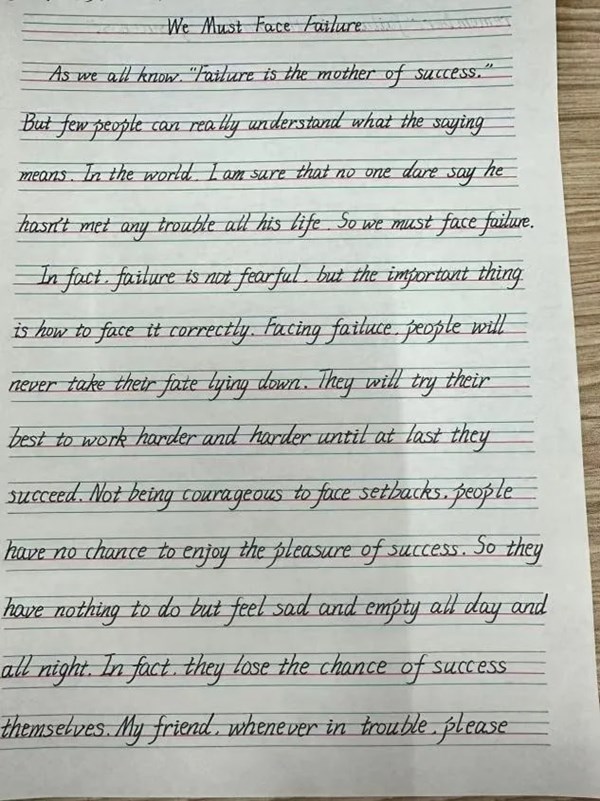 We Must Face Failure
As we all know. "Failure is the mother of success."
But few people can really understand what the saying
means. In the world. I am sure that no one dare say he
hasn't met any trouble all his life. So we must face failure.
In fact. failure is not fearful. but the important thing
is how to face it correctly. Facing failuce. people will
never take their fate lying down. They will try their
best to work harder and harder until at last they
succeed. Not being courageous to face setbacks. people
have no chance to enjoy the pleasure of success. So they
have nothing to do but feel sad and empty all day and
all night. In fact. they lose the chance of success
themselves. My friend. whenever in trouble. please